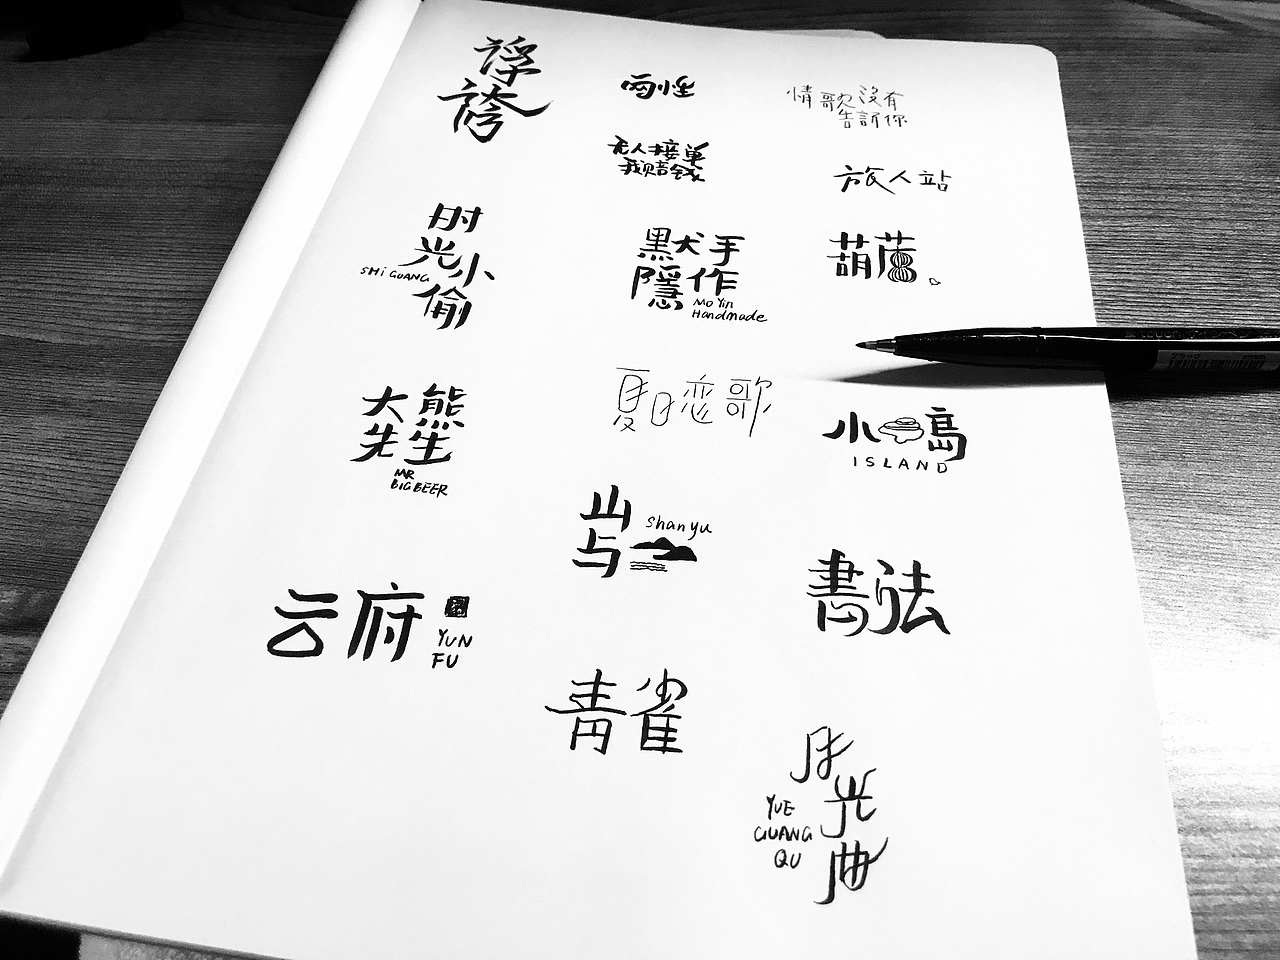 浮
誇
两性
情歌沒有
告訴你
无人接单
我赔钱
旅人站
时
光小
SHI GUANG
偷
默犬手
隱作
Mo Yin
Handmade
葫蘆。
大熊
先生
MR
BIG BEER
夏日恋歌
小島
ISLAND
山
与
shanyu
書法
云府
YUN
FU
青雀
月
光
曲
YUE
GUANG
QU